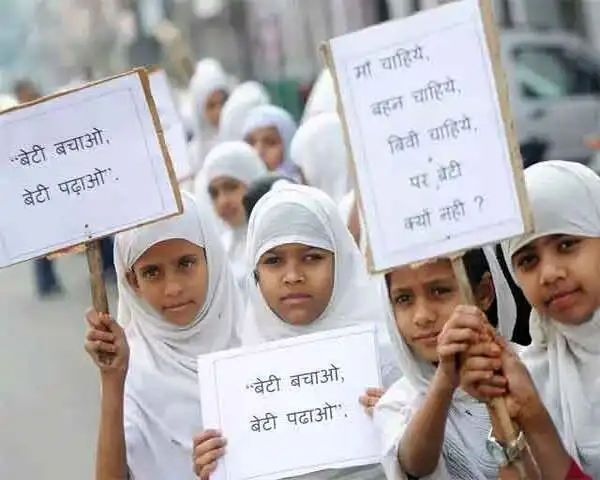 "बेटी बचाओ,
बेटी पढ़ाओ".
माँ चाहिये,
बहन चाहिये,
बिवी चाहिये,
पर बेटी
क्यों नही ?
"बेटी बचाओ,
बेटी पढाओ".